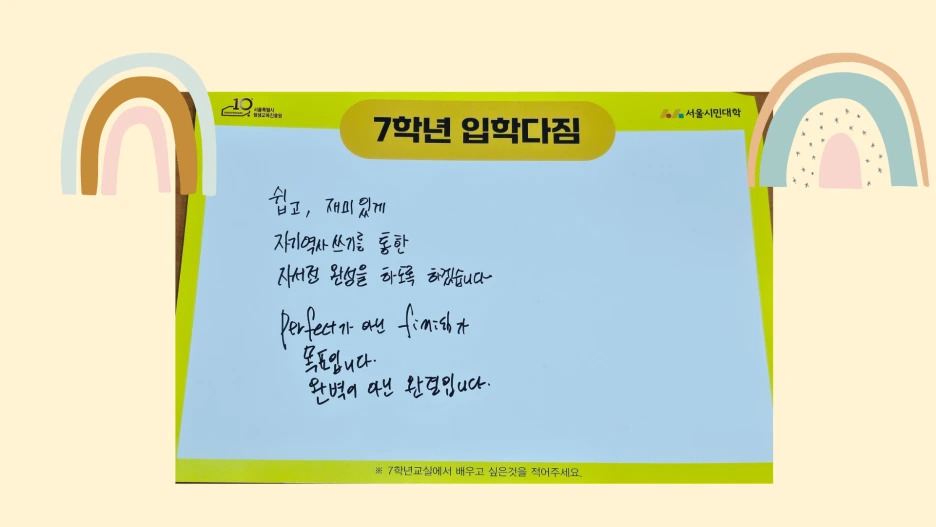 10 서울특별시
평생교육진흥원
7학년 입학다짐
서울시민대학
쉽고, 재미있게
자기역사 쓰기를 통한
자서전 완성을 하도록 하겠습니다
perfect가 아닌 finish가
목표입니다.
완벽이 아닌 완결입니다.
※ 7학년교실에서 배우고 싶은것을 적어주세요.